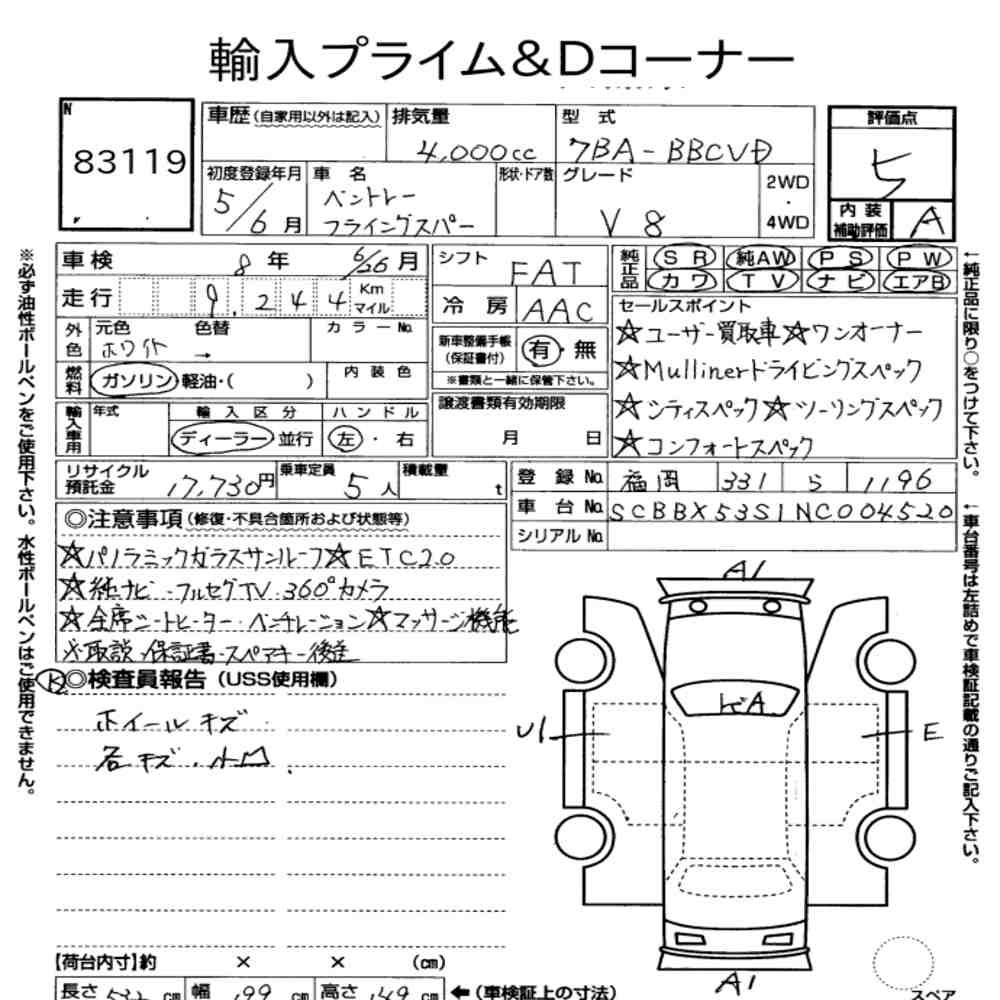 輸入プライム&Dコーナー
N
83119
車歴(自家用以外は記入)
排気量
4,000cc
型式
7BA-BBCVD
評価点
5
初度登録年月
5/6月
車名
ベントレー
フライングスパー
形状・ドア数
グレード
V8
2WD
・
4WD
内装
補助評価
A
車検
8年 6/26月
走行
9,244
Km
マイル
シフト
FAT
冷房
AAC
純正品
SR 純AW PS PW
カワ TV ナビ エアB
外色
元色
ホワイト
色替
→
カラーNo.
燃料
ガソリン・軽油・( )
内装色
新車整備手帳
(保証書付)
有・無
※書類と一緒に保管下さい。
セールスポイント
☆ユーザー買取車☆ワンオーナー
☆Mullinerドライビングスペック
☆シティスペック☆ツーリングスペック
☆コンフォートスペック
輸入車用
年式
輸入区分
ディーラー・並行
ハンドル
左・右
譲渡書類有効期限
月 日
リサイクル
預託金
17,730円
乗車定員
5人
積載量
t
登録No.
福岡 331 ら 1196
車台No.
SCBBX53S1NC004520
シリアルNo.
◎注意事項(修復・不具合箇所および状態等)
☆パノラミックガラスサンルーフ☆ETC2.0
☆純ナビ・フルセグTV・360°カメラ
☆全席シートヒーター・ベンチレーション☆マッサージ機能
※取説・保証書・スペアキー後送
◎検査員報告(USS使用欄)
ホイールキズ
各キズ・小凹
A1
U1
E
A1
スペア
【荷台内寸】約 × × (cm)
長さ cm 幅 199 cm 高さ 149 cm ←(車検証上の寸法)
※必ず油性ボールペンをご使用下さい。水性ボールペンはご使用できません。
←純正品に限り○をつけて下さい。
←車台番号は左詰めで車検証記載の通りご記入下さい。